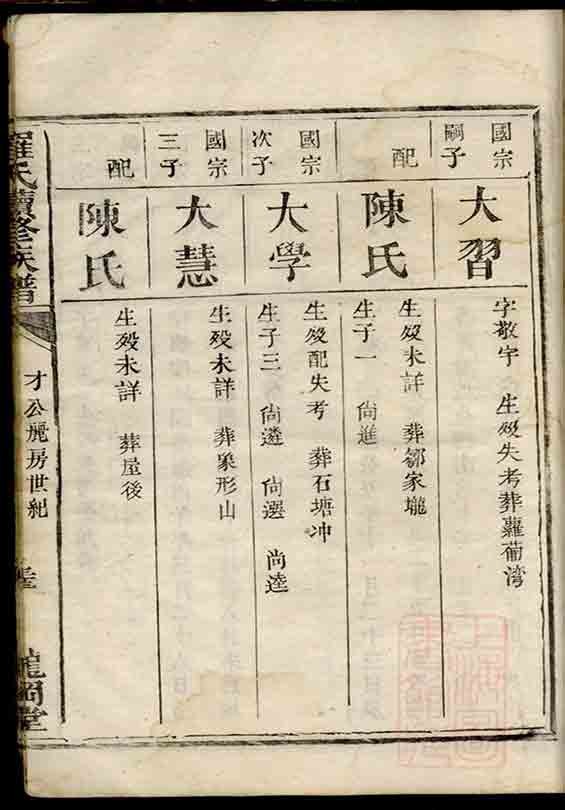 國宗
嗣子
大習
字敬字 生歿失考葬蘿蔔湾
配
陳氏
生歿未詳 葬鄒家壠
生子一 尚進
國宗
次子
大學
生歿配失考 葬石塘冲
生子三 尚遴 尚選 尚逵
國宗
三子
大慧
生歿未詳 葬象形山
配
陳氏
生歿未詳 葬屋後
羅氏續修族譜
才公麗房世紀
龍岡堂